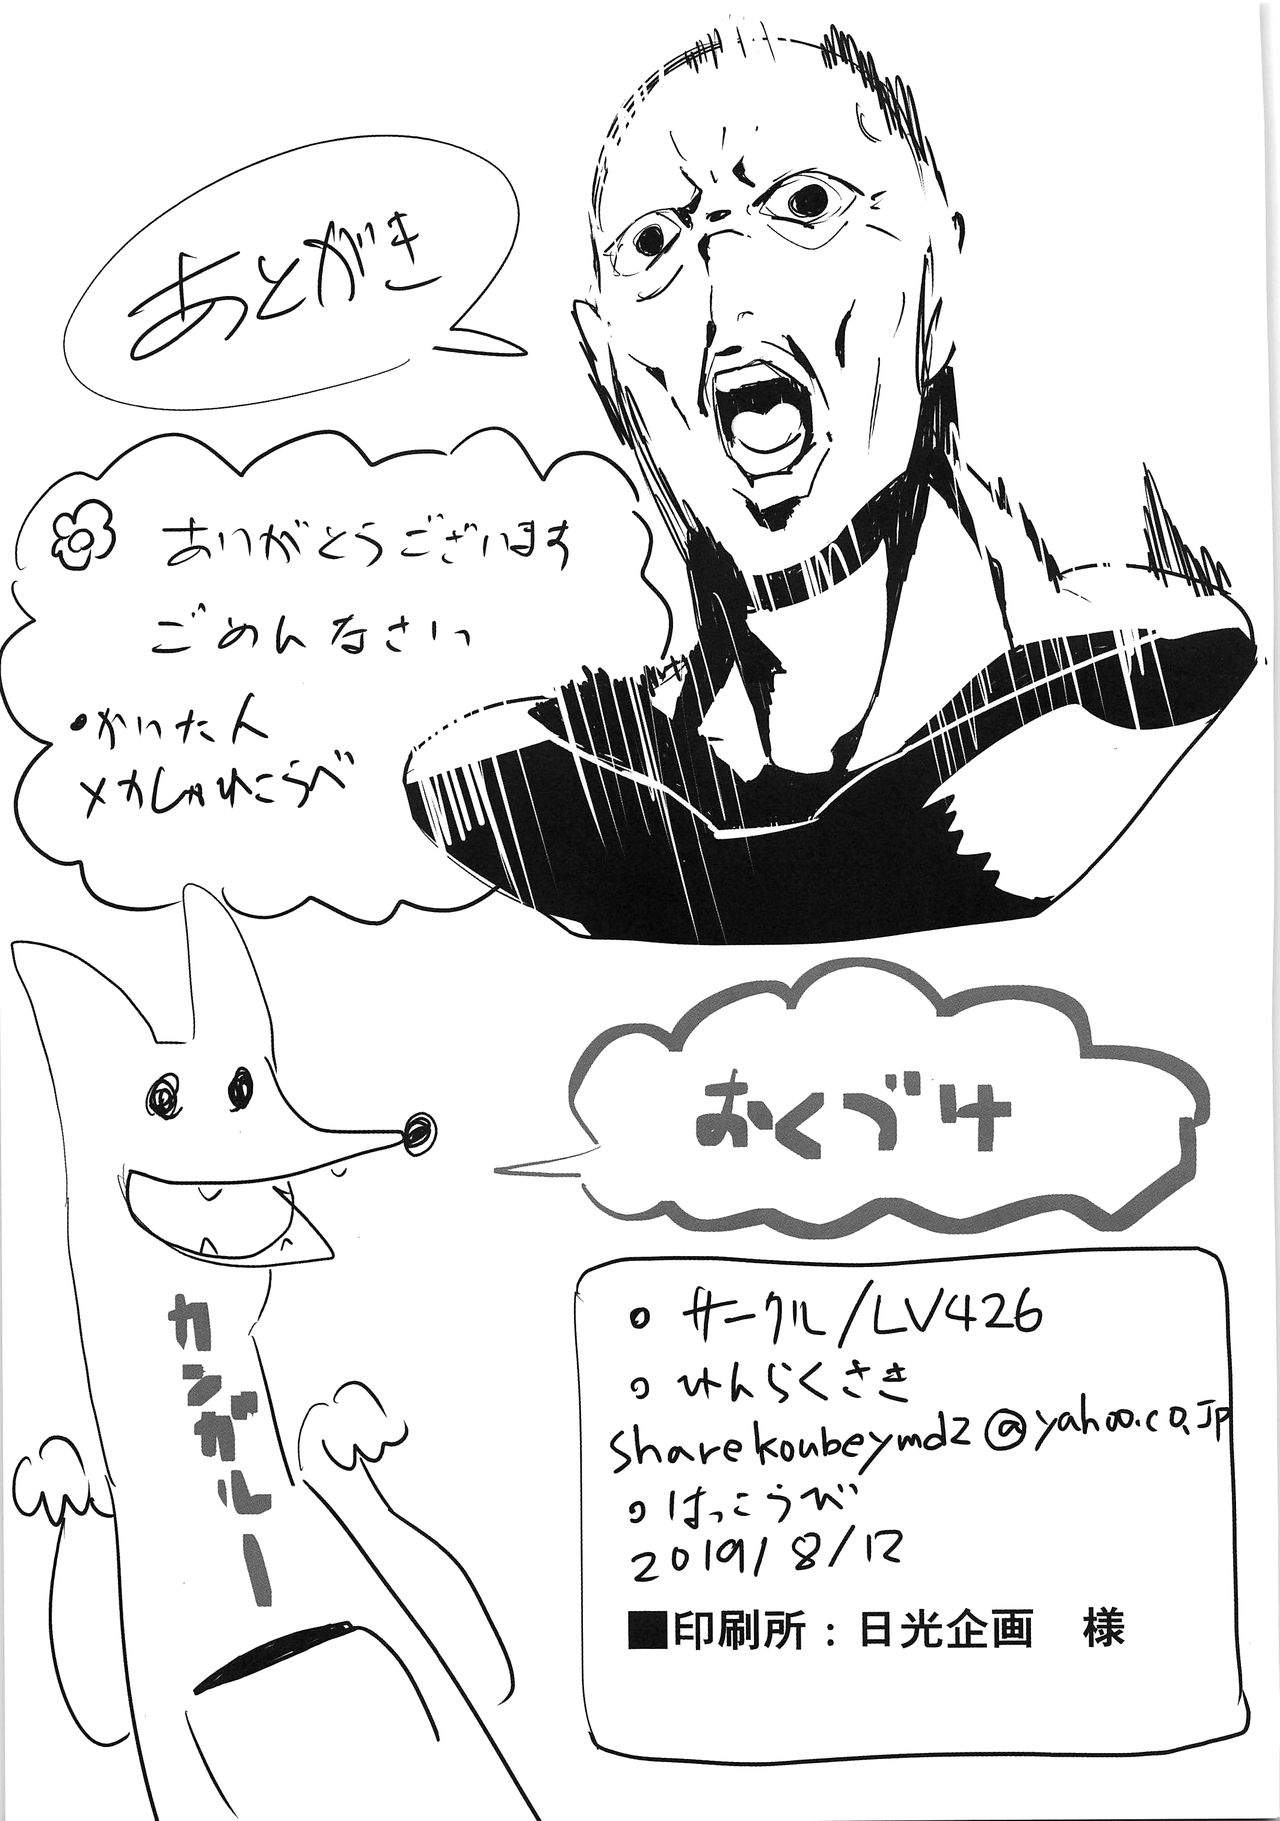 あとがき
ありがとうございます
ごめんなさい
・かいたん
メカしゃれこうべ
おくづけ
カンガルー
・サークル/LV426
・れんらくさき
sharekoubeymd2@yahoo.co.jp
・はっこうび
2019/8/12
■印刷所：日光企画　様